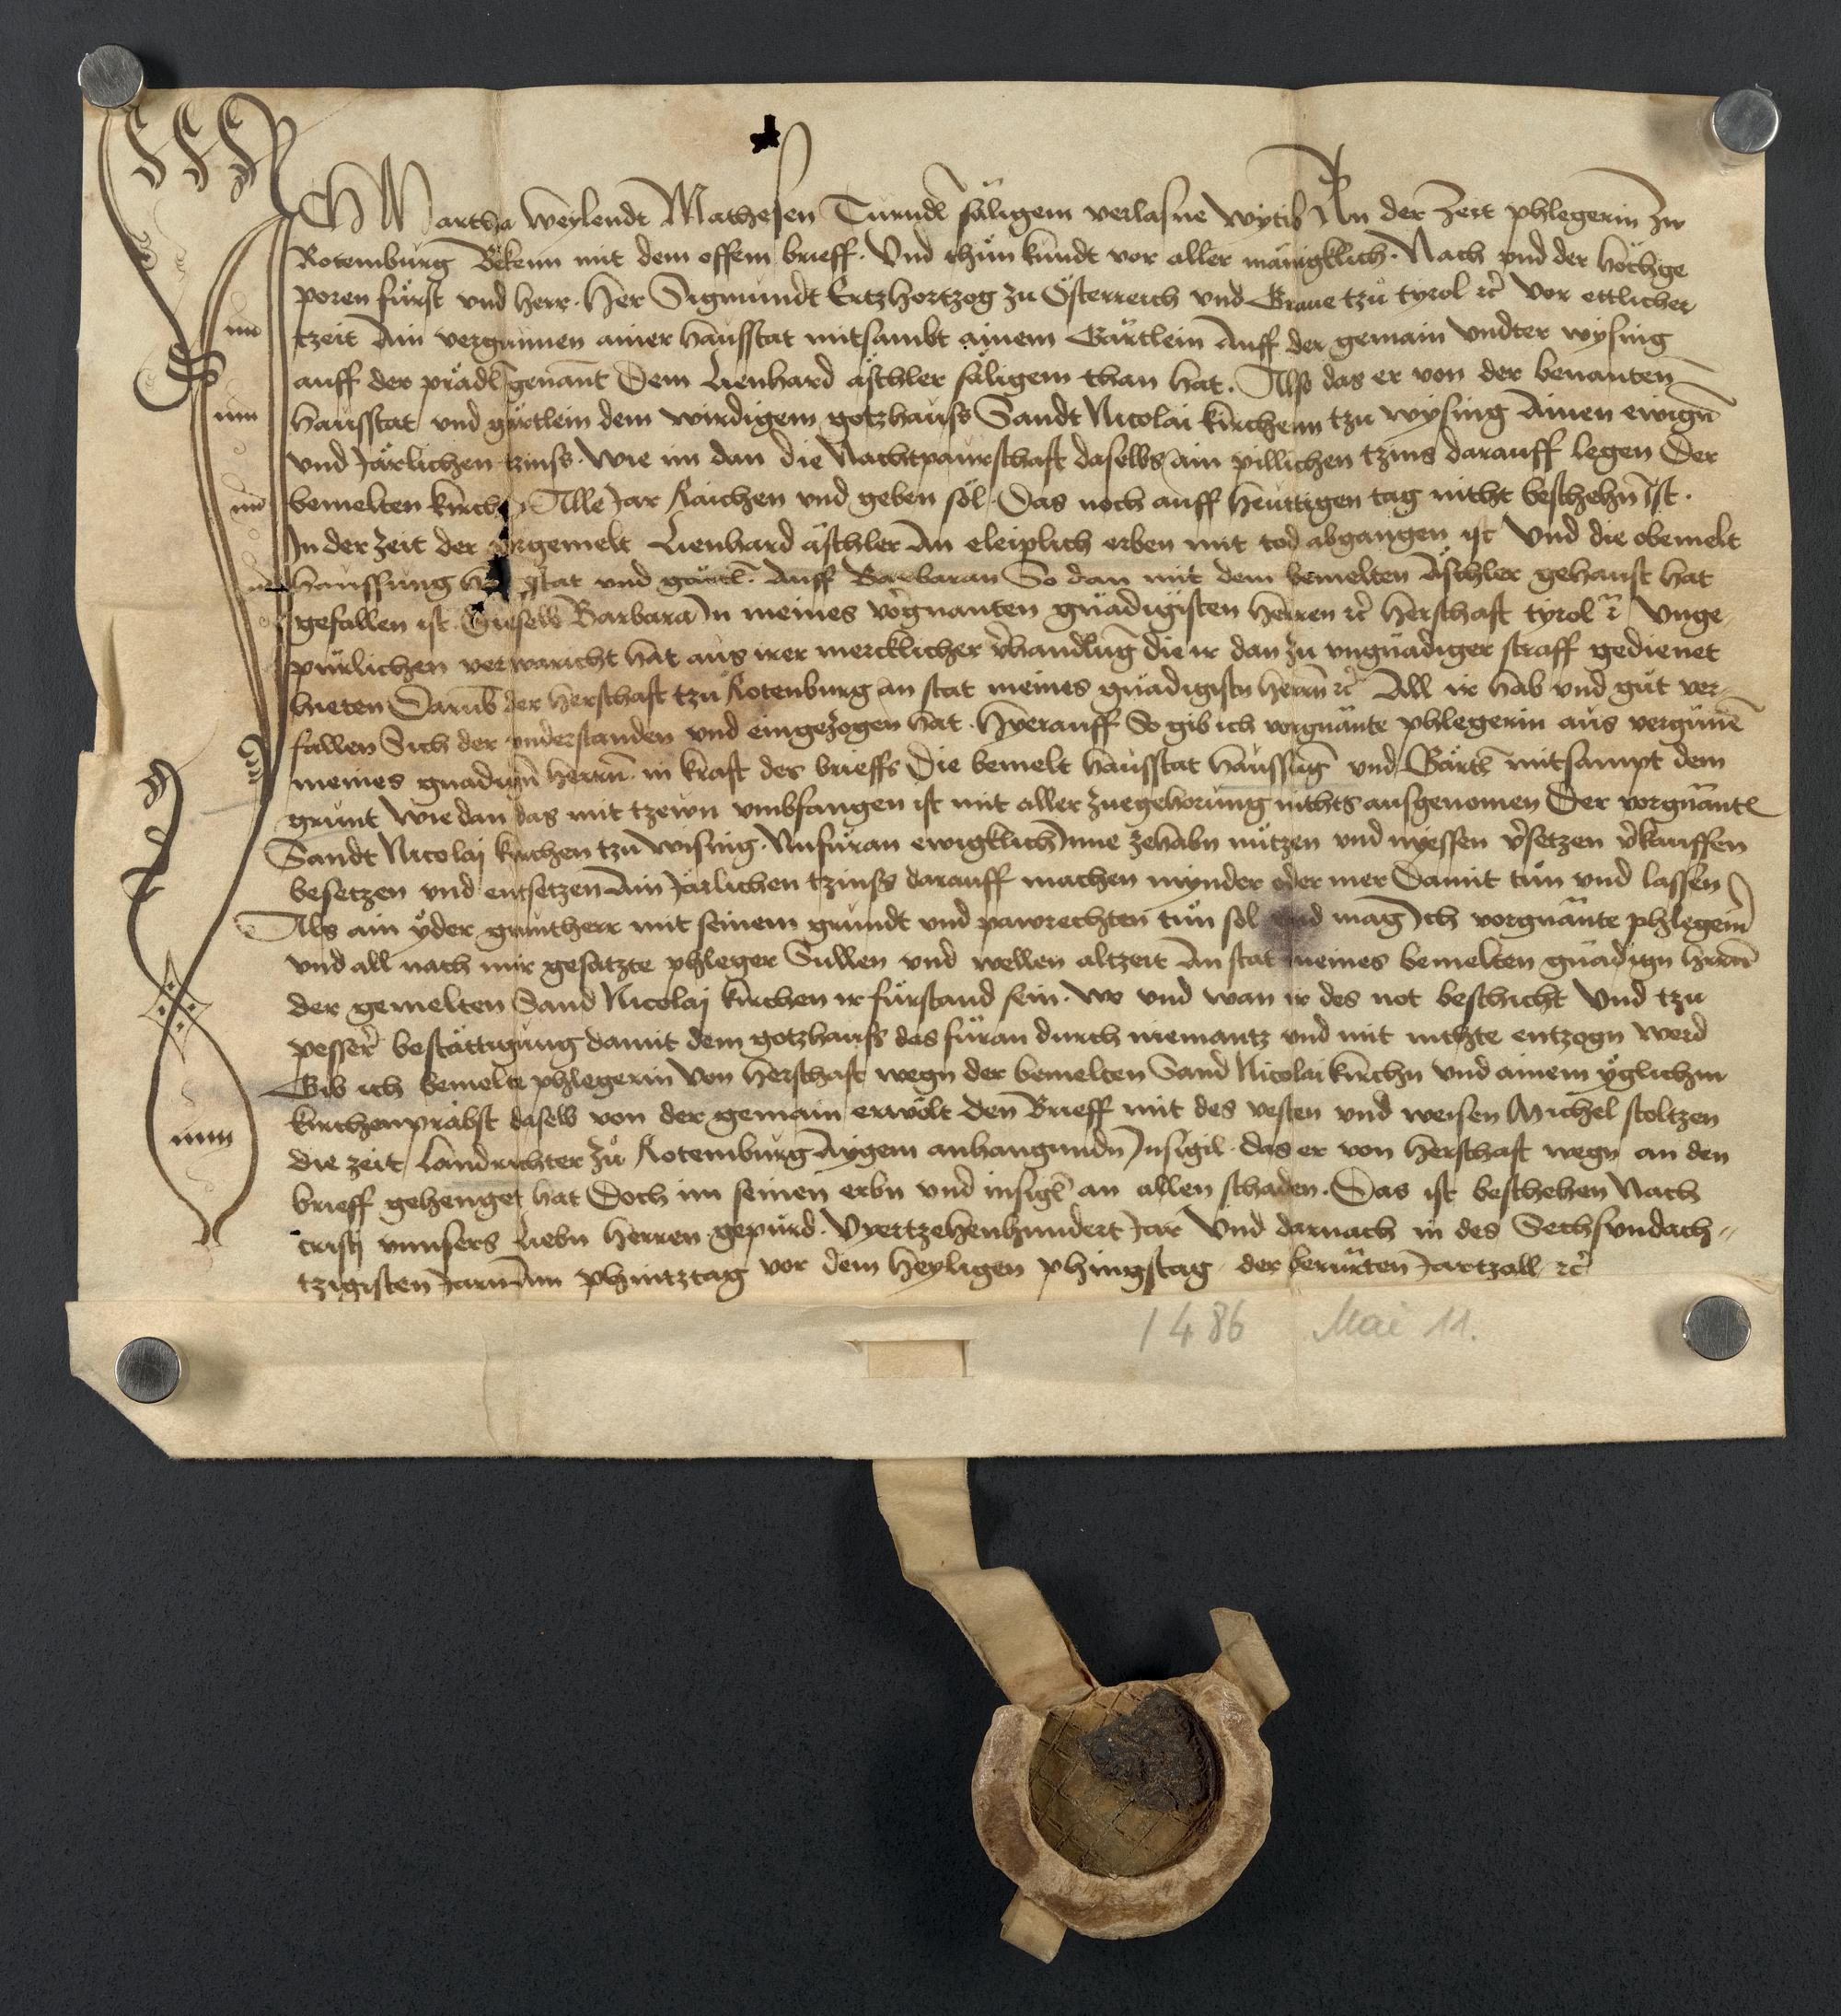 ICH Martha weylendt Mathesen Turndl säligem verlasne wytib An der Zeit phlegerin zw
Rotemburg Bekenn mit dem offem brieff. Und thůn kundt vor aller mänigklich. Nach und der hochge
poren fürst und herr. Her Sigmundt Ertzhortzog zu Österreich und Graue tzů tyrol rc̃ Vor ettlicher
tzeit Ain vergunnen ainer haüsstat mitsambt ainem Gärtlein Auff der gemain Undter wysing
auff der prädl genant Dem Lienhard äschler säligem than hat. Also das er von der benanten
haüsstat und gärtlein dem wirdigem gotzhauss Sandt Nicolai kirchenn tzu wysing Ainen ewign̄
und Järlichen tzinss. wie im dan die Nachtpaurschaft daselbs ain pillichen tzins darauff legen Der
bemelten kirch Alle Jar Raichen und geben sol. Das noch auff heuttigen tag nicht beschehn̄ Ist.
In der zeit der gemelt Lienhard äschler An eleiplich erben mit tod abgangen ist Und die obemelt
haussung stat und gärtl. Auff Barbaran So dan mit dem bemelten Äschler gehaust hat
gefallen ist. Dieselb Barbara In meines vorgnanten gnädigisten herren rc̃ herschaft tyrol rc̃ Unge
pürlichen verwaricht hat aus irer mercklicher ṽhandlung die ir dan zu ungnädiger straff gedienet
hieten Darub̄ der herschaft tzů Rotenburg an stat meines gnädigistn herrn̄ rc̃ All ir hab und gut ver-
fallen Sich der understanden und eingezogen hat. Hyerauff So gib ich vorgnānte phlegerin aus vergunē
meines gnadign̄ herrn̄ in kraft des brieffs Die bemelt haüsstat haüssūg und Gärtl mitsampt dem
grunt wie dan das mit tzewn umbfangen ist mit aller zuegehorung nichts ausgenomen Der vorgnānt
Sandt Nicolaj kirchen tzu wising. Nufuran ewigklich Inne zehabn nützen und nyessen ṽsetzen ṽkauffen
besetzen und entsetzen Ain Järlichen tzinss darauff machen mynder oder mer Damit tůn und lassen
Als ain yder gruntherr mit seinem grundt und pawrechten tůn sol und mag Ich vorgnānte phlegerin̄
und all nach mir gesatzte phleger Sullen und wellen altzeit An stat meines bemelten gnädign herrn̄
der gemelten Sand Nicolaj kirchen ir fürstand sein. wo und wan ir des not beschicht Und tzu
pesser̄ bestättigung damit dem gotzhauss des füran durch niemantz und mit nichte entzogn werd
Gib ich bemelte phlegerin Von herschaft wegn der bemelten Sand Nicolai kirchn und ainem yglichm
kirchenpräbst daselb von der gemain erwölt Den Brieff mit des vesten und weisen Michel stoltzen
die zeit Landrichter zů Rotemburg Aygem anhangundn Insigil. das er von herschaft wegn an den
brieff gehenget hat Doch im seinen erbn und insigl an allen schaden. Das ist beschehen Nach
cristj unnsers Liebn herren gepurd. Vyertzehenhundert Jar Und darnach in des Sechsundach-
tzigisten Jarn Am phintztag vor dem heyligen phingstag der berürten Jartzall rc̃
1486 Mai 11.